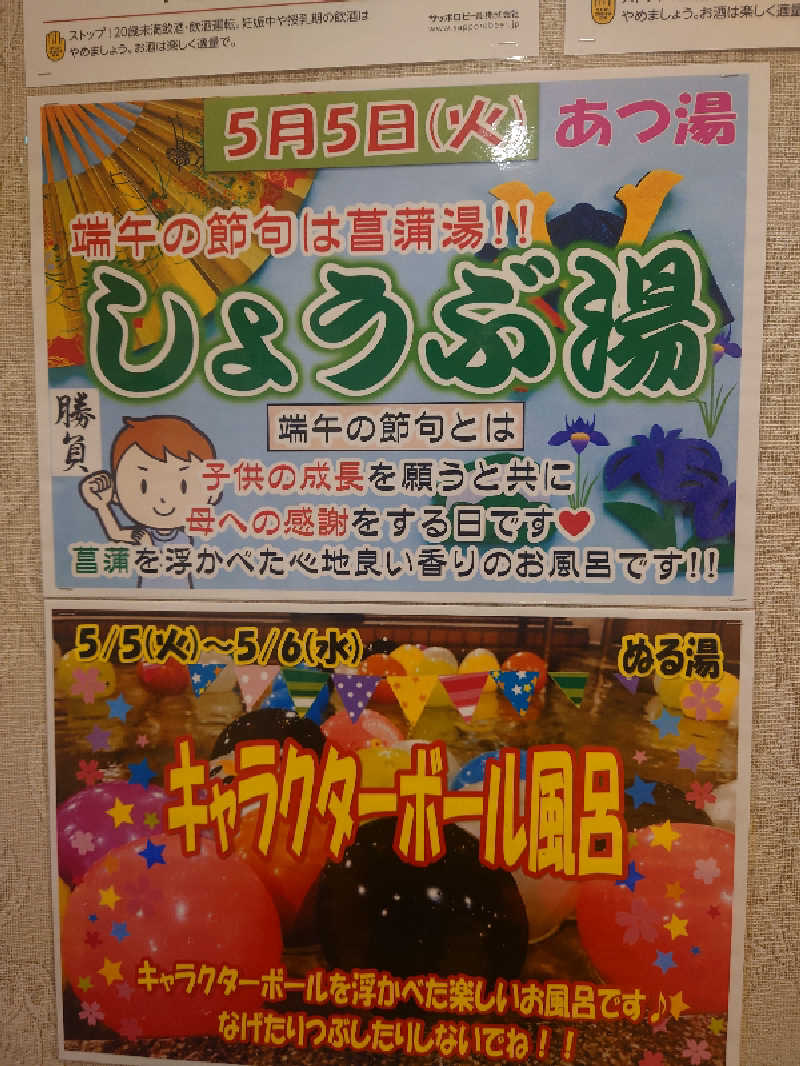 ストップ!20歳未満飲酒・飲酒運転。妊娠中や授乳期の飲酒は
やめましょう。お酒は楽しく適量で。
サッポロビール株式会社
www.sapporobeer.jp
やめましょう。お酒は楽しく適量
5月5日(火)
あつ湯
端午の節句は菖蒲湯!!
しょうぶ湯
勝負
端午の節句とは
子供の成長を願うと共に
母への感謝をする日です♥
菖蒲を浮かべた心地良い香りのお風呂です!!
5/5(火)～5/6(水)
ぬる湯
キャラクターボール風呂
キャラクターボールを浮かべた楽しいお風呂です♪
なげたりつぶしたりしないでね！！